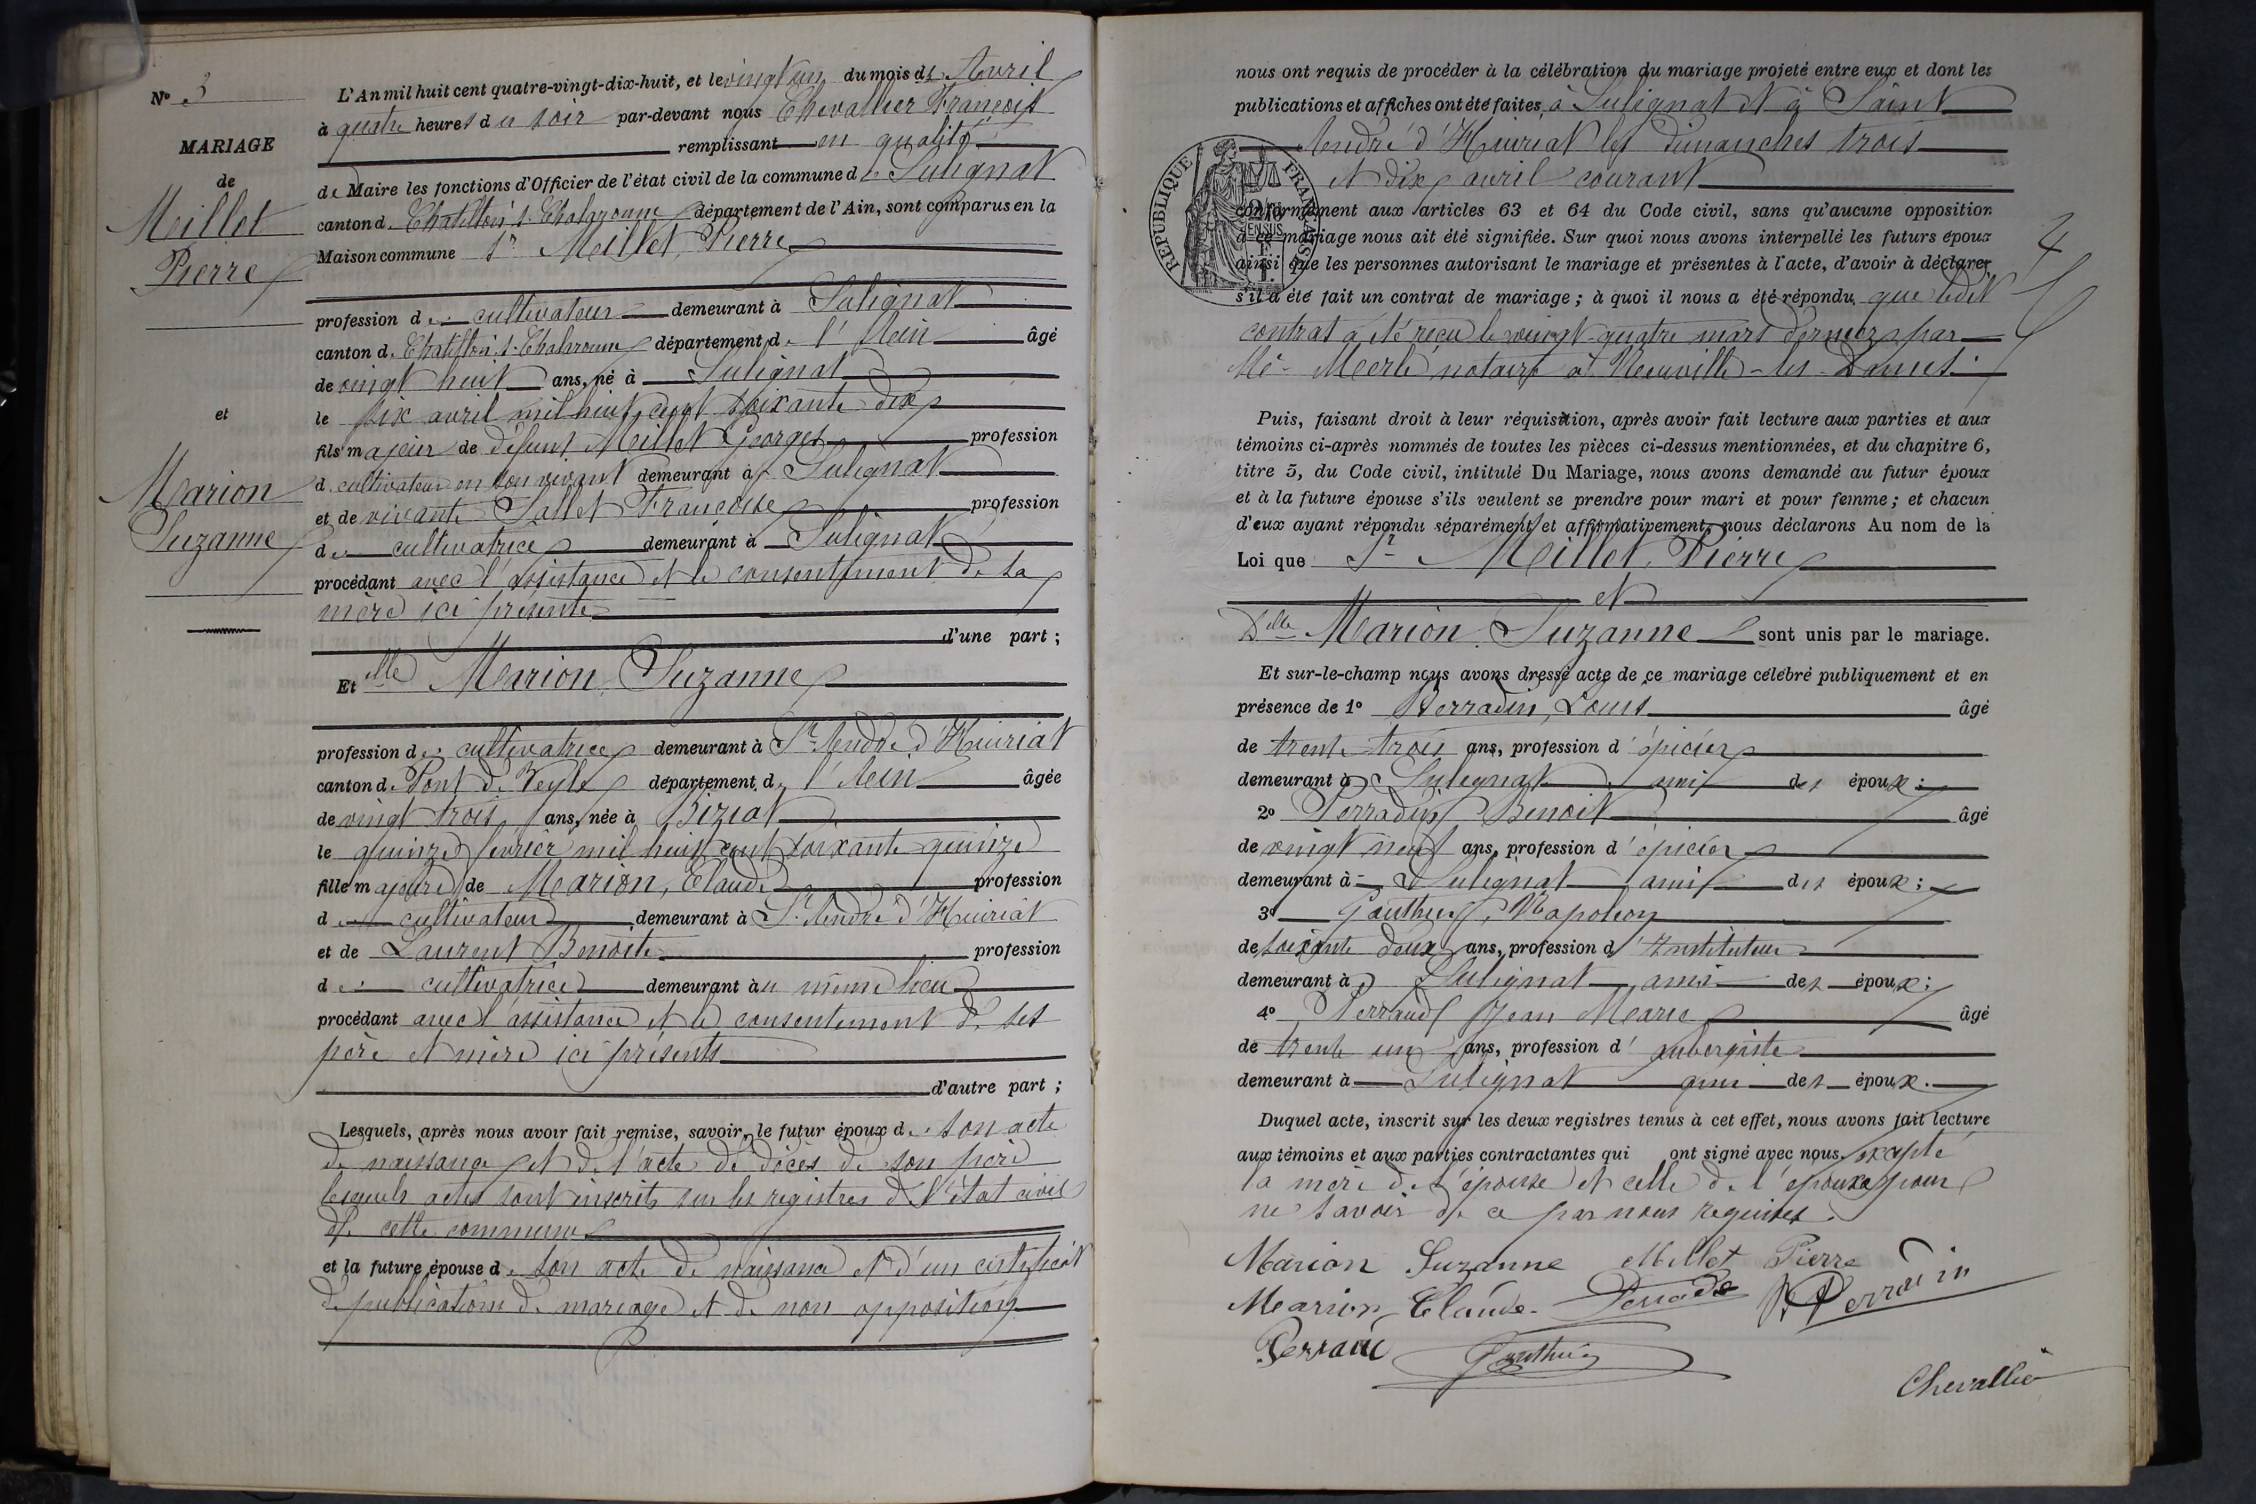 N° 3
MARIAGE
de
Meillet
Pierre
et
Marion
Suzanne
L'An mil huit cent quatre-vingt-dix-huit, et le vingt un du mois de Avril
à quatre heures du soir par-devant nous Chevallier François
remplissant en qualité
de Maire les fonctions d'Officier de l'état civil de la commune de Sulignat
canton de Chatillon s. Chalaronne département de l'Ain, sont comparus en la
Maison commune Sr Meillet, Pierre
profession de cultivateur demeurant à Sulignat
canton de Chatillon s. Chalaronne département de l'Ain âgé
de vingt huit ans, né à Sulignat
le six avril mil huit cent soixante dix
fils majeur de défunt Meillet Georges profession
d cultivateur en son vivant demeurant à Sulignat
et de vivante Sallet Françoise profession
de cultivatrice demeurant à Sulignat
procédant avec l'assistance et le consentement de sa
mère ici présente
d'une part ;
Et elle Marion, Suzanne
profession de cultivatrice demeurant à St André d'Huiriat
canton de Pont de Veyle département de l'Ain âgée
de vingt trois ans, née à Biziat
le quinze février mil huit cent soixante quinze
fille majeure de Marion, Claude profession
de cultivateur demeurant à St André d'Huiriat
et de Laurent Benoite profession
de cultivatrice demeurant au même lieu
procédant avec l'assistance et le consentement de ses
père et mère ici présents
d'autre part ;
Lesquels, après nous avoir fait remise, savoir, le futur époux de son acte
de naissance et de l'acte de décès de son père
lesquels actes sont inscrits sur les registres de l'état civil
de cette commune
et la future épouse de son acte de naissance et d'un certificat
de publication de mariage et de non opposition
nous ont requis de procéder à la célébration du mariage projeté entre eux et dont les
publications et affiches ont été faites, à Sulignat et à Saint
André d'Huiriat les dimanches trois
et dix avril courant
RÉPUBLIQUE FRANÇAISE
conformément aux articles 63 et 64 du Code civil, sans qu'aucune opposition
à ce mariage nous ait été signifiée. Sur quoi nous avons interpellé les futurs époux
ainsi que les personnes autorisant le mariage et présentes à l'acte, d'avoir à déclarer
s'il a été fait un contrat de mariage ; à quoi il nous a été répondu que ledit
contrat a été reçu le vingt-quatre mars dernier par
Me Merle notaire à Neuville-les-Dames.
Puis, faisant droit à leur réquisition, après avoir fait lecture aux parties et aux
témoins ci-après nommés de toutes les pièces ci-dessus mentionnées, et du chapitre 6,
titre 5, du Code civil, intitulé Du Mariage, nous avons demandé au futur époux
et à la future épouse s'ils veulent se prendre pour mari et pour femme ; et chacun
d'eux ayant répondu séparément et affirmativement, nous déclarons Au nom de la
Loi que Sr Meillet, Pierre
et
Delle Marion Suzanne sont unis par le mariage.
Et sur-le-champ nous avons dressé acte de ce mariage célébré publiquement et en
présence de 1° Perradin, Louis âgé
de trente trois ans, profession d'épicier
demeurant à Sulignat ami des époux ;
2° Perradin Benoit âgé
de vingt neuf ans, profession d'épicier
demeurant à Sulignat ami des époux ;
3° Gauthier, Napoléon
de soixante deux ans, profession d'Instituteur
demeurant à Sulignat ami des époux ;
4° Perraud Jean Marie âgé
de trente un ans, profession d'aubergiste
demeurant à Sulignat ami des époux.
Duquel acte, inscrit sur les deux registres tenus à cet effet, nous avons fait lecture
aux témoins et aux parties contractantes qui ont signé avec nous, excepté
la mère de l'épouse et celle de l'époux pour
ne savoir de ce par nous requises.
Marion Suzanne Millet Pierre
Marion Claude Perradin B. Perradin
Perraud Gauthier
Chevallier